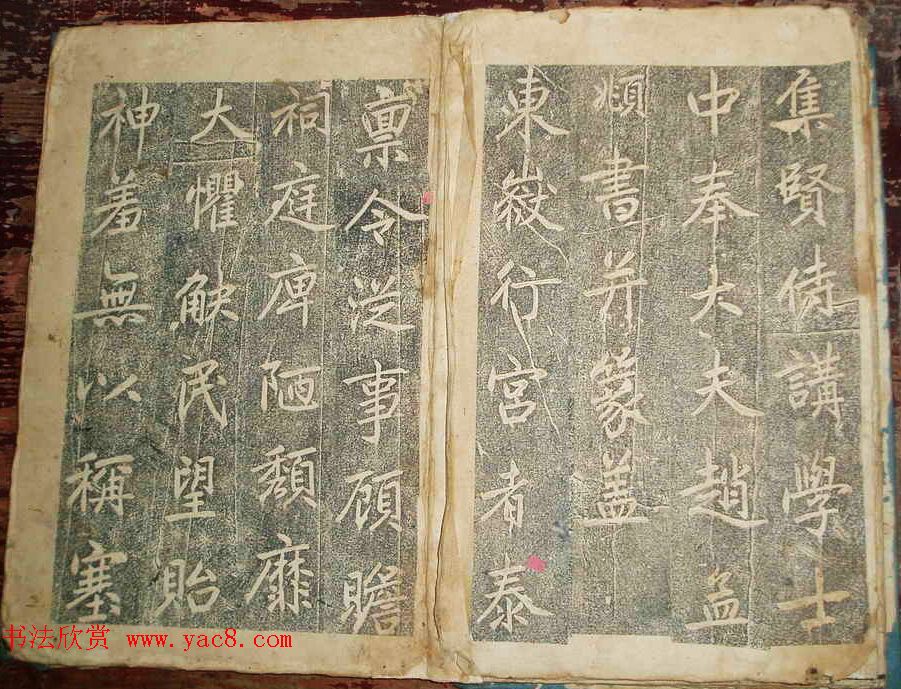 集賢侍講學士
中奉大夫趙孟
頫書并篆蓋
東嶽行宮者泰
稟令從事顧瞻
祠庭庳陋頹靡
大懼觖民望貽
神羞無以稱塞
书法欣赏 www.yac8.com